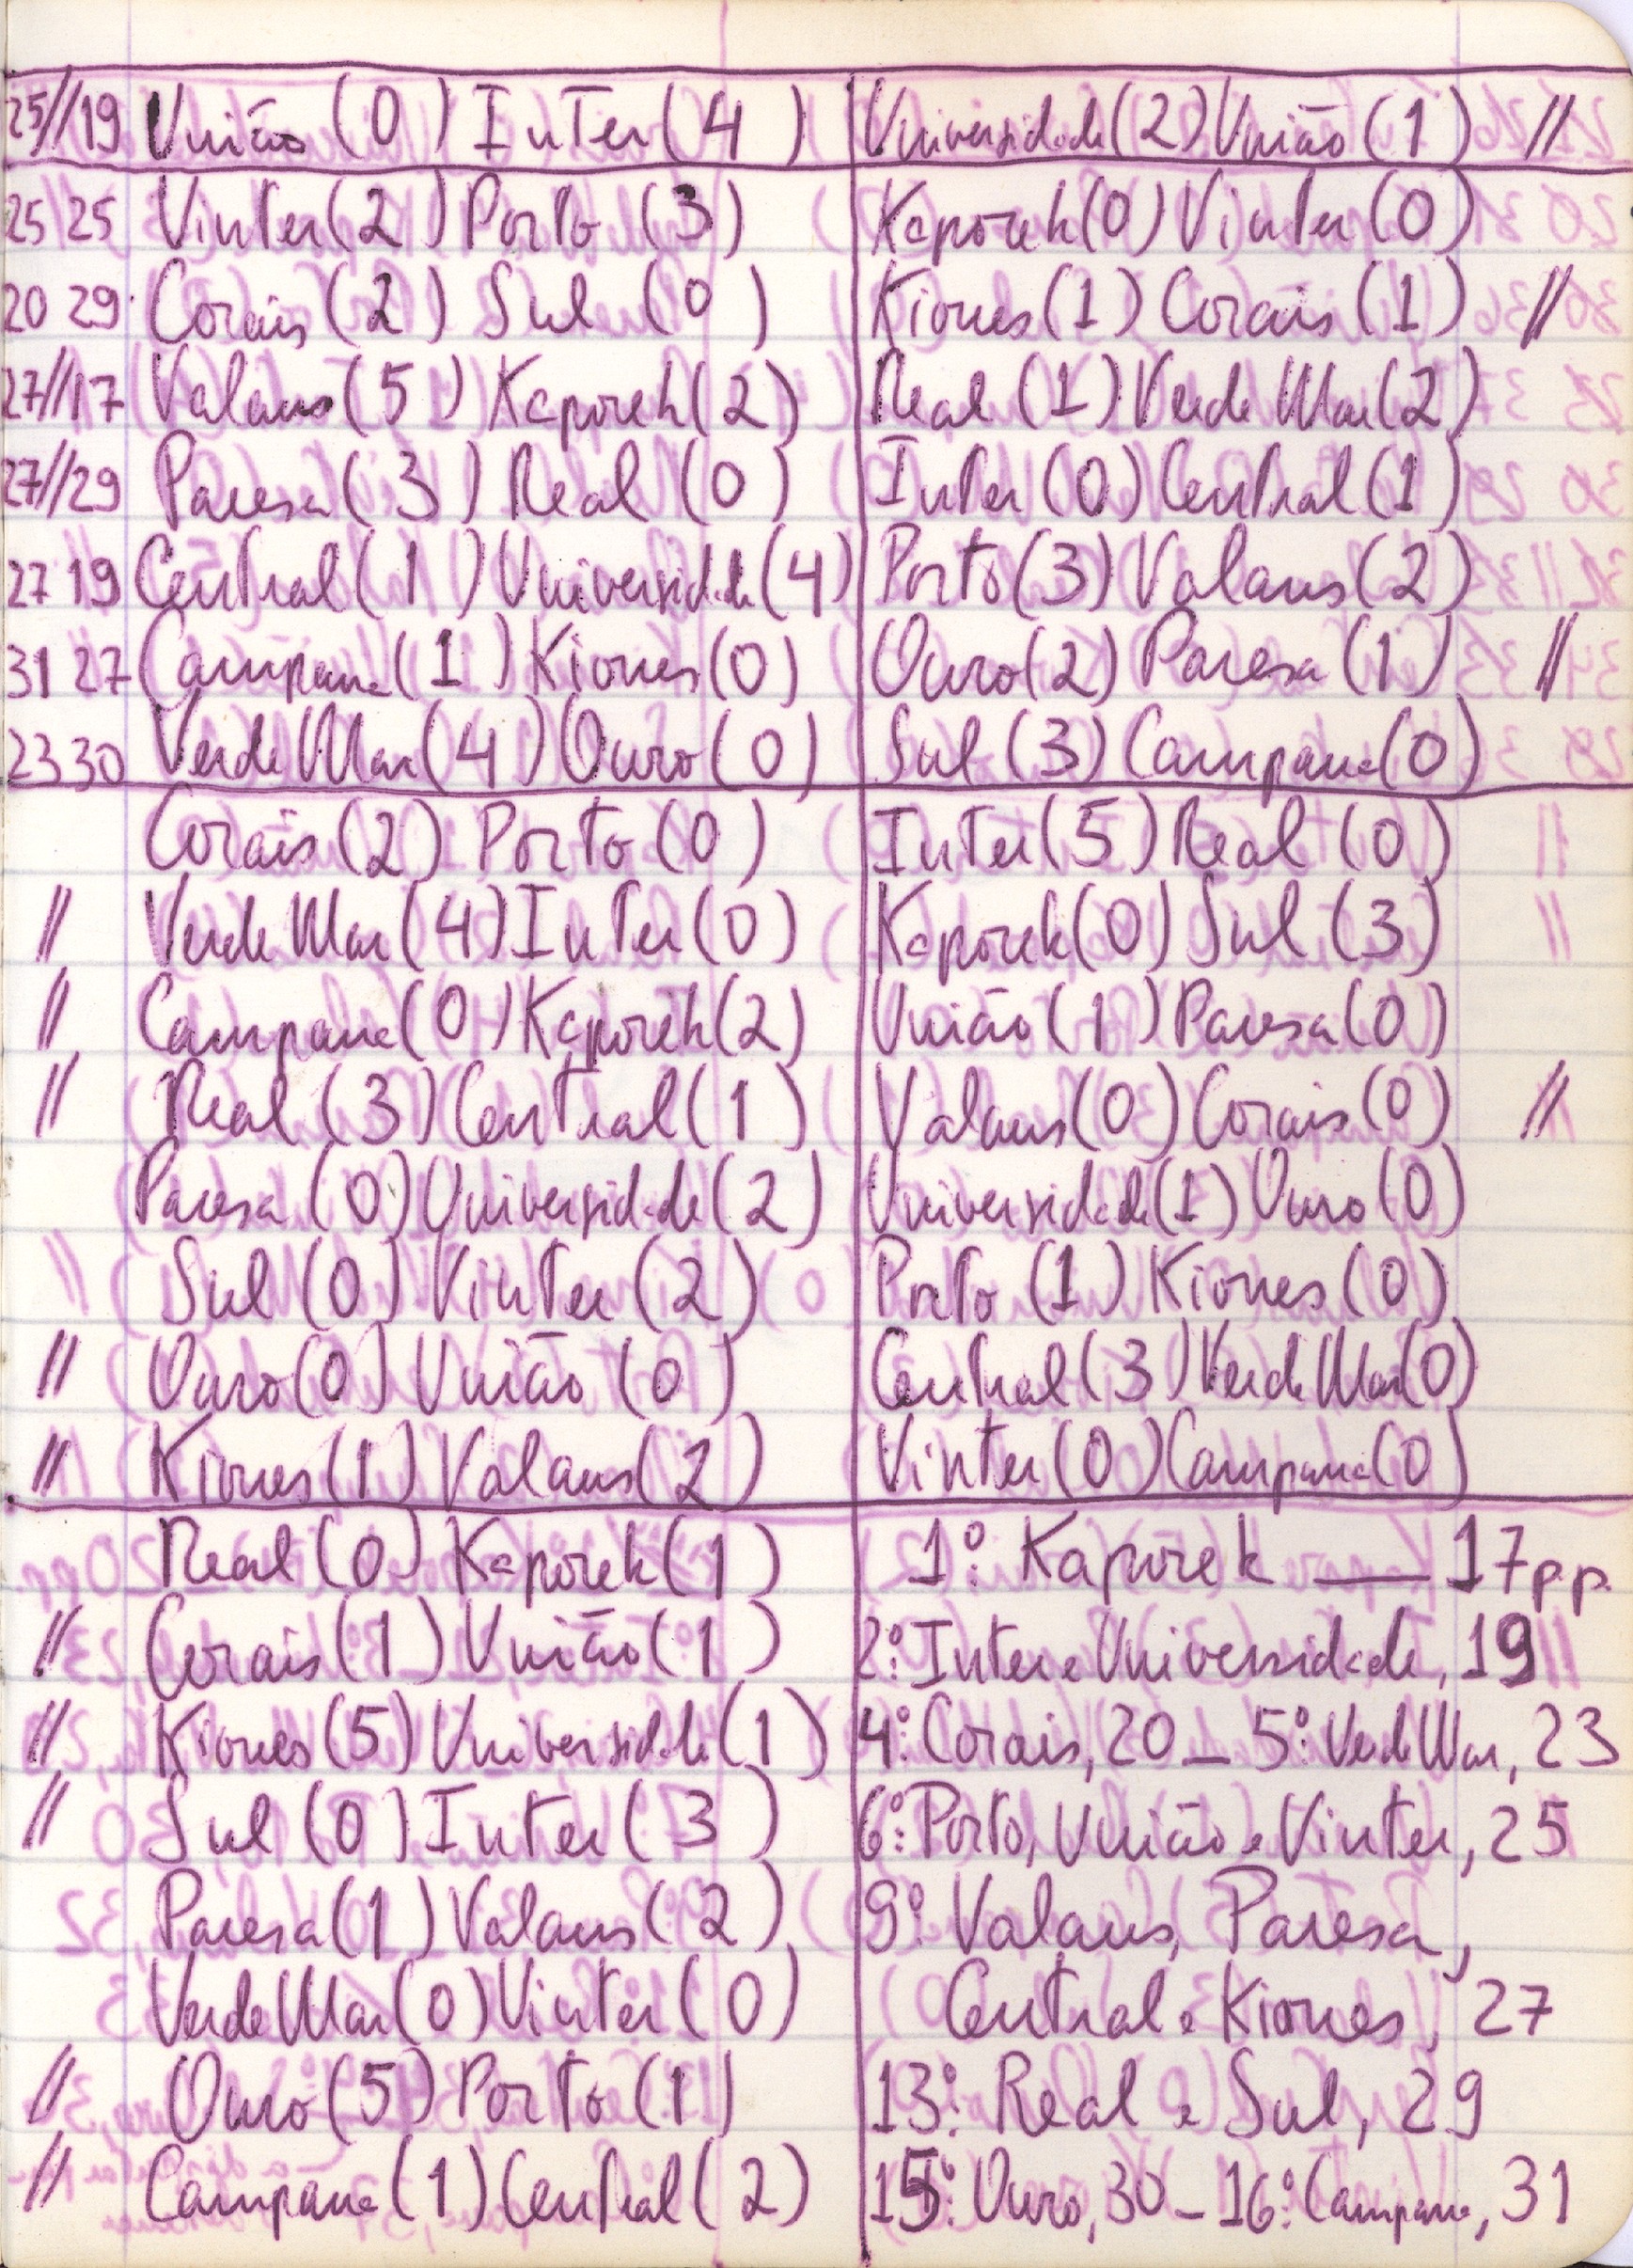 25//19 União (0) Inter (4)
25 25 Vinter (2) Porto (3)
20 29 Corais (2) Sul (0)
27//17 Valaus (5) Kaporek (2)
27//29 Paresa (3) Real (0)
27 19 Central (1) Universidade (4)
31 27 Campana (1) Kiones (0)
23 30 Verde Mar (4) Ouro (0)
Universidade (2) União (1) //
Kaporek (0) Vinter (0)
Kiones (1) Corais (1) //
Real (1) Verde Mar (2)
Inter (0) Central (1)
Porto (3) Valaus (2)
Ouro (2) Paresa (1) //
Sul (3) Campana (0)
Corais (2) Porto (0)
// Verde Mar (4) Inter (0)
// Campana (0) Kaporek (2)
// Real (3) Central (1)
Paresa (0) Universidade (2)
Sul (0) Vinter (2)
// Ouro (0) União (0)
// Kiones (1) Valaus (2)
Inter (5) Real (0)
Kaporek (0) Sul (3)
União (1) Paresa (0)
Valaus (0) Corais (0) //
Universidade (1) Ouro (0)
Porto (1) Kiones (0)
Central (3) Verde Mar (0)
Vinter (0) Campana (0)
Real (0) Kaporek (1)
// Corais (1) União (1)
// Kiones (5) Universidade (1)
// Sul (0) Inter (3)
Paresa (1) Valaus (2)
Verde Mar (0) Vinter (0)
// Ouro (5) Porto (1)
// Campana (1) Central (2)
1º: Kaporek — 17 p.p.
2º: Inter e Universidade, 19
4º: Corais, 20 – 5º: Verde Mar, 23
6º: Porto, União e Vinter, 25
9º: Valaus, Paresa,
Central e Kiones, 27
13º: Real e Sul, 29
15º: Ouro, 30 – 16º: Campana, 31